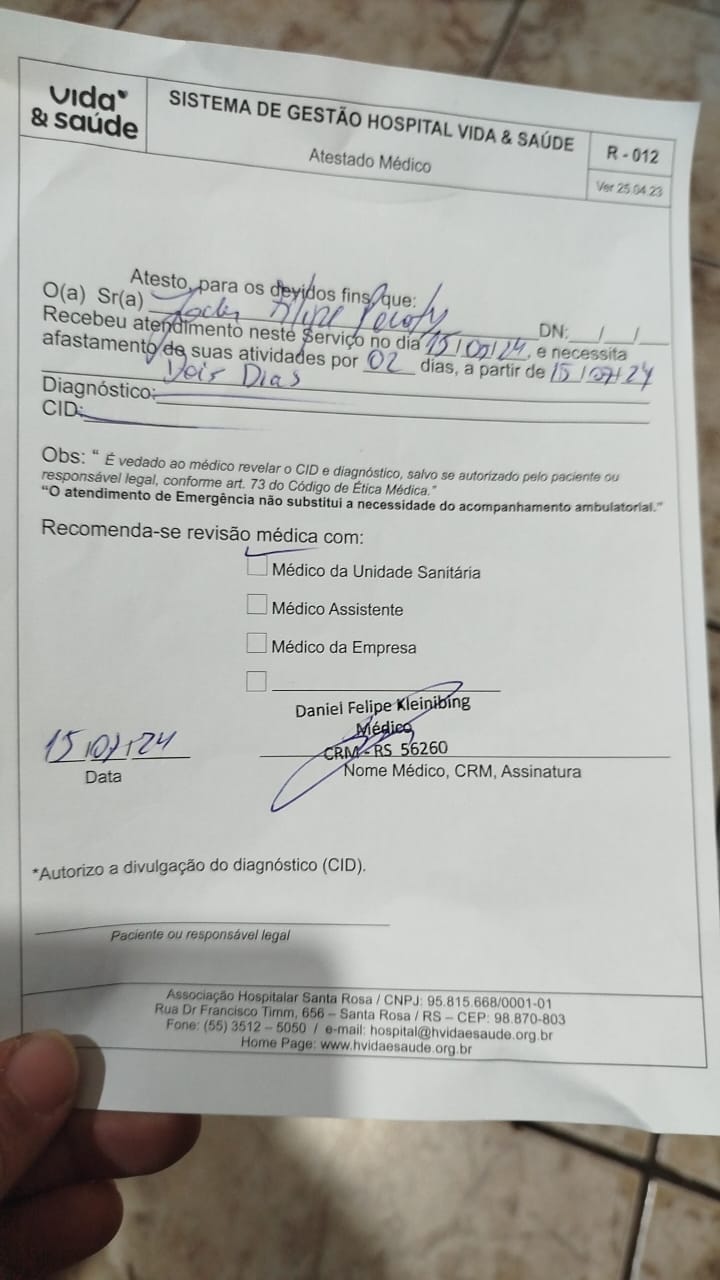 vida
& saúde
SISTEMA DE GESTÃO HOSPITAL VIDA & SAÚDE
Atestado Médico
R - 012
Ver 25.04.23
Atesto, para os devidos fins, que:
O(a) Sr(a) Filipe DN: / /
Recebeu atendimento neste Serviço no dia 15/07/24, e necessita
afastamento de suas atividades por 02 dias, a partir de 15/07/24
Dois Dias
Diagnóstico:
CID:
Obs: " É vedado ao médico revelar o CID e diagnóstico, salvo se autorizado pelo paciente ou
responsável legal, conforme art. 73 do Código de Ética Médica."
"O atendimento de Emergência não substitui a necessidade do acompanhamento ambulatorial."
Recomenda-se revisão médica com:
Médico da Unidade Sanitária
Médico Assistente
Médico da Empresa
Daniel Felipe Kleinibing
Médico
CRM - RS 56260
15/07/24
Data
Nome Médico, CRM, Assinatura
*Autorizo a divulgação do diagnóstico (CID).
Paciente ou responsável legal
Associação Hospitalar Santa Rosa / CNPJ: 95.815.668/0001-01
Rua Dr Francisco Timm, 656 – Santa Rosa / RS – CEP: 98.870-803
Fone: (55) 3512 – 5050 / e-mail: hospital@hvidaesaude.org.br
Home Page: www.hvidaesaude.org.br